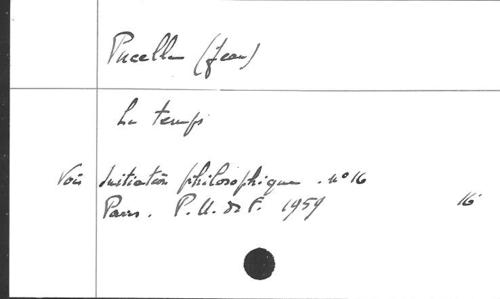 Pucelle (Jean)
Le temps
Voir Initiation philosophique. n° 16
Paris. P.U. de F. 1959 16